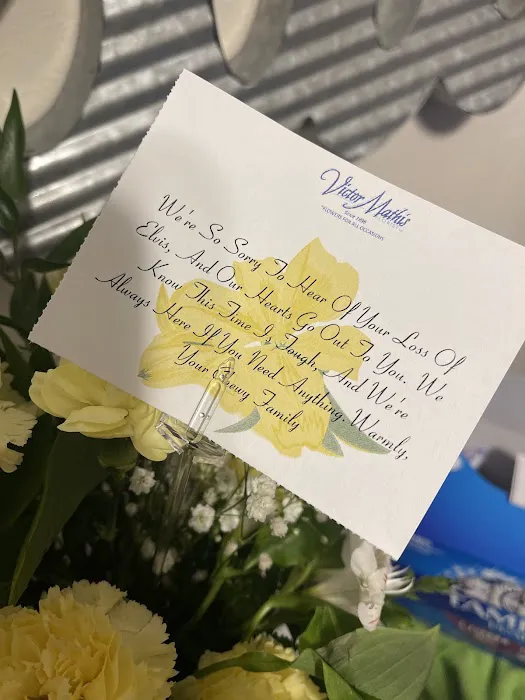 Victor Mathis
Since 1996
"FLOWERS FOR ALL OCCASIONS
We're So Sorry To Hear Of Your Loss Of
Elvis, And Our Hearts Go Out To You. We
Know This Time Is Tough, And We're
Always Here If You Need Anything. Warmly,
Your Chewy Family